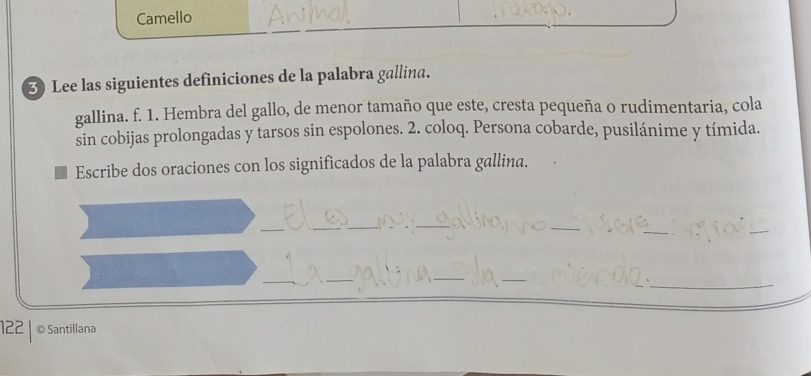 Camello Animal Trabajo.
3 Lee las siguientes definiciones de la palabra gallina.
gallina. f. 1. Hembra del gallo, de menor tamaño que este, cresta pequeña o rudimentaria, cola
sin cobijas prolongadas y tarsos sin espolones. 2. coloq. Persona cobarde, pusilánime y tímida.
Escribe dos oraciones con los significados de la palabra gallina.
El es muy gallina, no quiere entrar
La gallina la
122 | © Santillana